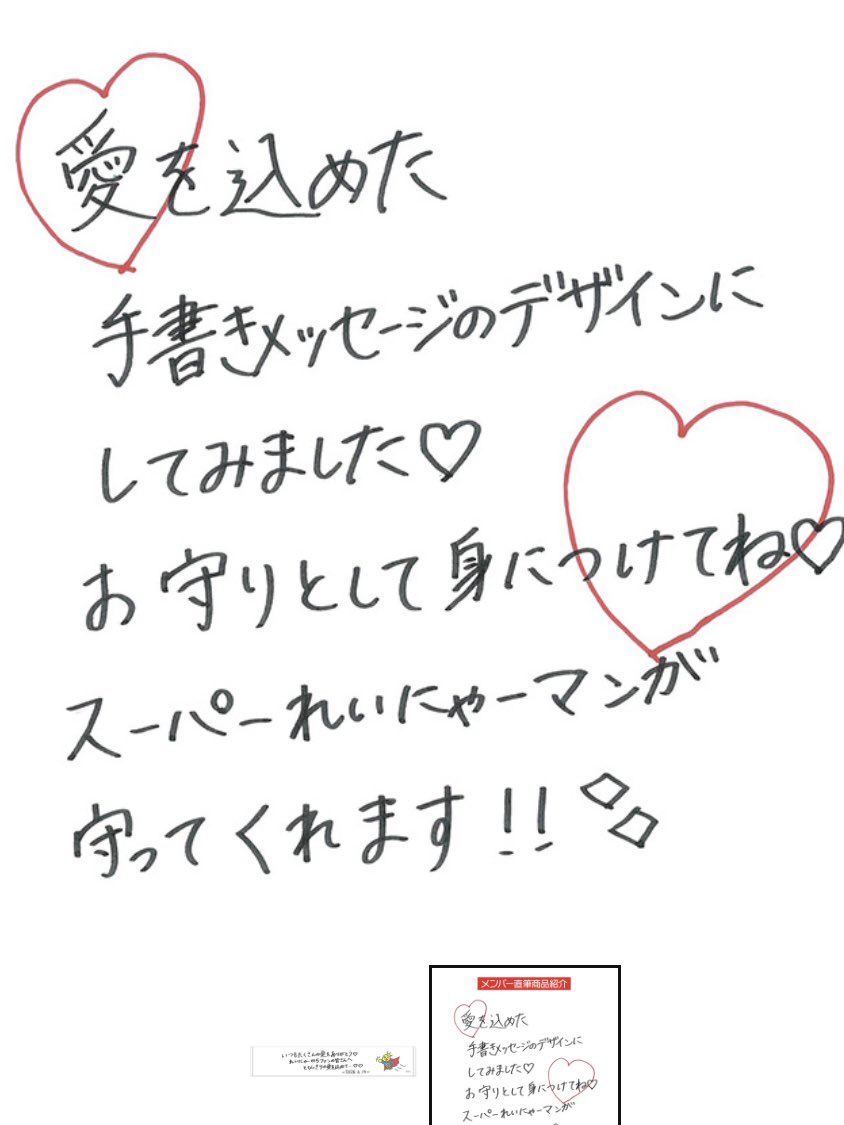 愛を込めた
手書きメッセージのデザインに
してみました♡
お守りとして身につけてね♡
スーパーれいにゃーマンが
守ってくれます!!
メンバー直筆商品紹介
愛を込めた
手書きメッセージのデザインに
してみました♡
お守りとして身につけてね♡
スーパーれいにゃーマンが
いつもたくさんの愛をありがとう♡